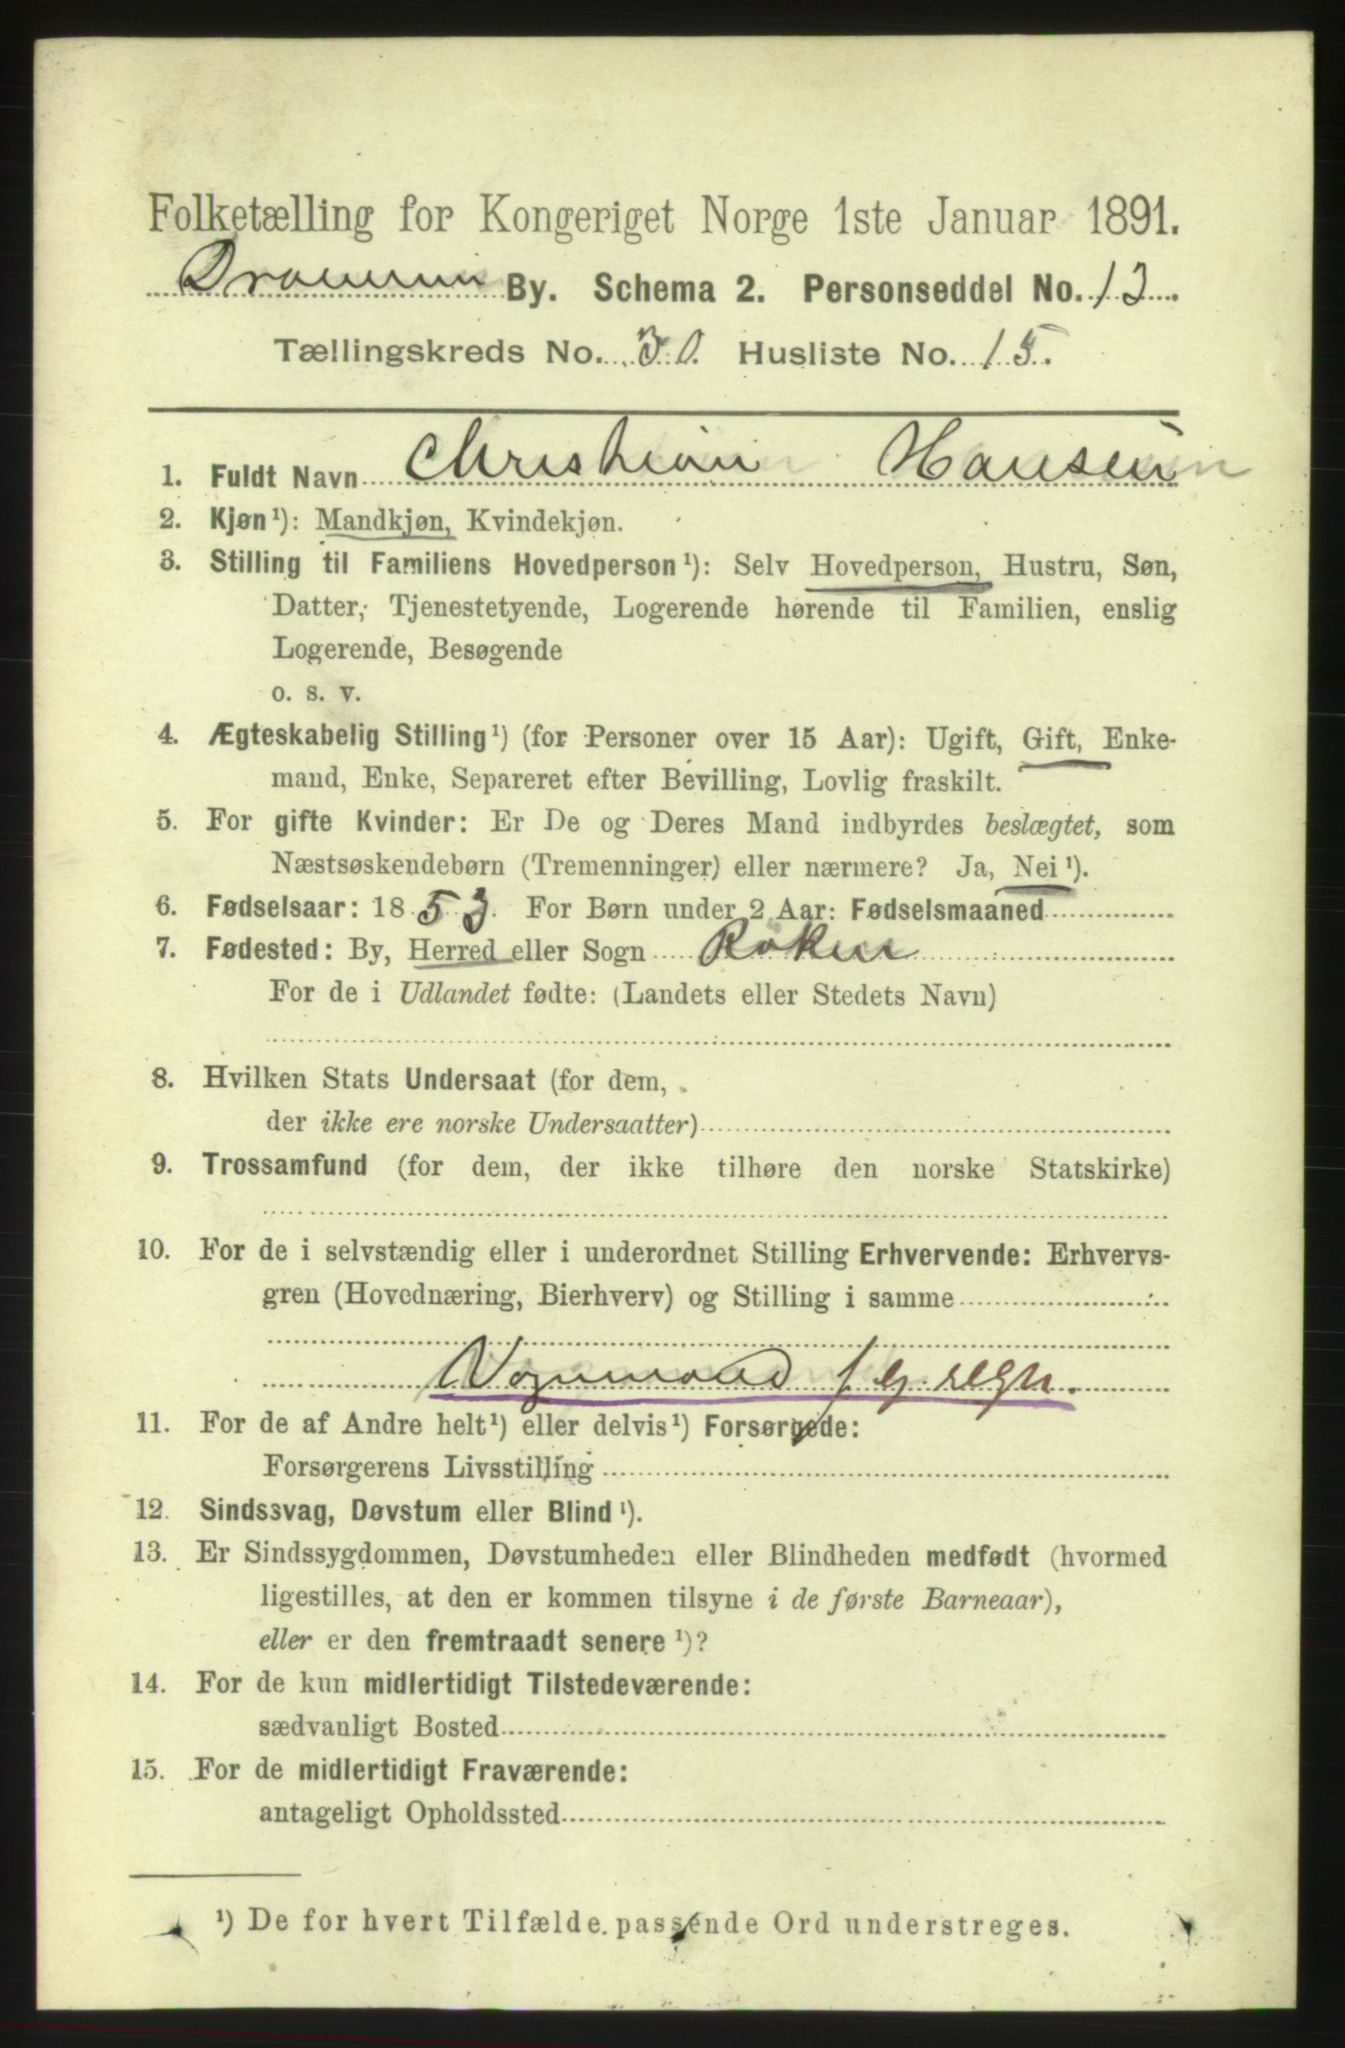 Folketælling for Kongeriget Norge 1ste Januar 1891.
Drammen By. Schema 2. Personseddel No. 13.
Tællingskreds No. 30. Husliste No. 15.
1. Fuldt Navn Christian Hansen
2. Kjøn¹): Mandkjøn, Kvindekjøn.
3. Stilling til Familiens Hovedperson¹): Selv Hovedperson, Hustru, Søn,
Datter, Tjenestetyende, Logerende hørende til Familien, enslig
Logerende, Besøgende
o. s. v.
4. Ægteskabelig Stilling¹) (for Personer over 15 Aar): Ugift, Gift, Enke-
mand, Enke, Separeret efter Bevilling, Lovlig fraskilt.
5. For gifte Kvinder: Er De og Deres Mand indbyrdes beslægtet, som
Næstsøskendebørn (Tremenninger) eller nærmere? Ja, Nei¹).
6. Fødselsaar: 1853. For Børn under 2 Aar: Fødselsmaaned
7. Fødested: By, Herred eller Sogn Røken
For de i Udlandet fødte: (Landets eller Stedets Navn)
8. Hvilken Stats Undersaat (for dem,
der ikke ere norske Undersaatter)
9. Trossamfund (for dem, der ikke tilhøre den norske Statskirke)
10. For de i selvstændig eller i underordnet Stilling Erhvervende: Erhvervs-
gren (Hovednæring, Bierhverv) og Stilling i samme
Vognmand f eg. regn.
11. For de af Andre helt¹) eller delvis¹) Forsørgede:
Forsørgerens Livsstilling
12. Sindssvag, Døvstum eller Blind¹).
13. Er Sindssygdommen, Døvstumheden eller Blindheden medfødt (hvormed
ligestilles, at den er kommen tilsyne i de første Barneaar),
eller er den fremtraadt senere¹)?
14. For de kun midlertidigt Tilstedeværende:
sædvanligt Bosted
15. For de midlertidigt Fraværende:
antageligt Opholdssted
¹) De for hvert Tilfælde passende Ord understreges.